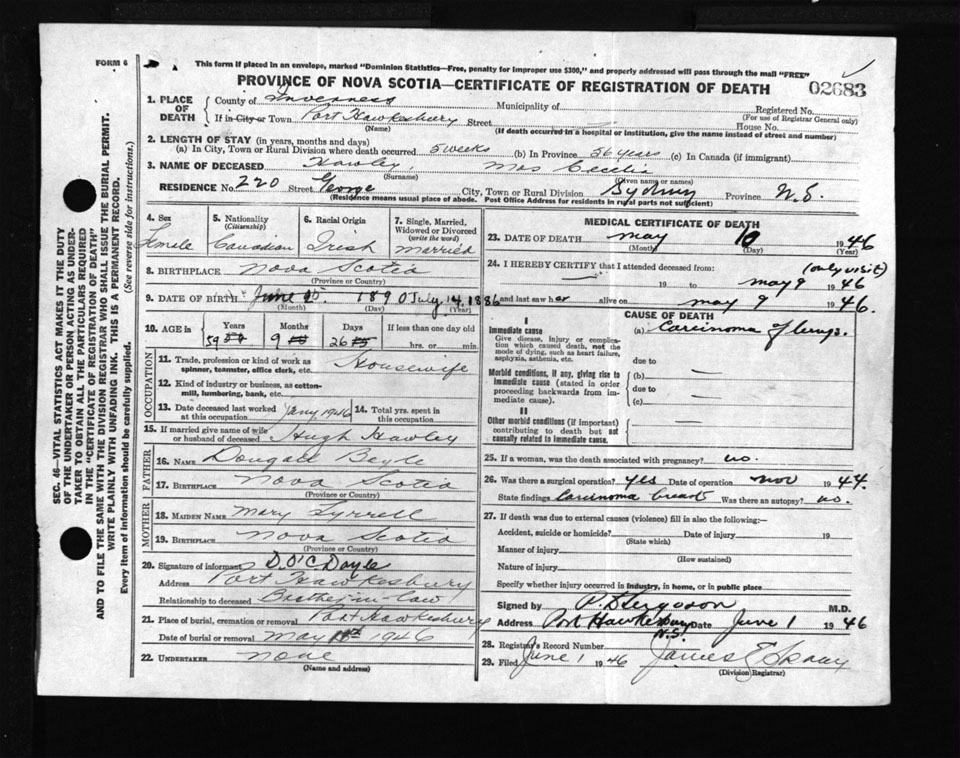 FORM 6
This form if placed in an envelope, marked "Dominion Statistics—Free, penalty for improper use $300," and properly addressed will pass through the mail "FREE"
PROVINCE OF NOVA SCOTIA—CERTIFICATE OF REGISTRATION OF DEATH
02683
1. PLACE OF DEATH County of Inverness Municipality of Registered No.
(For use of Registrar General only)
If in City or Town Port Hawkesbury Street House No.
(Name) (If death occurred in a hospital or institution, give the name instead of street and number)
2. LENGTH OF STAY (in years, months and days)
(a) In City, Town or Rural Division where death occurred 5 weeks (b) In Province 56 years (c) In Canada (if immigrant)
3. NAME OF DECEASED Hawley Mrs Cecelia
(Surname) (Given name or names)
RESIDENCE No. 220 Street George City, Town or Rural Division Sydney Province N.S.
(Residence means usual place of abode. Post Office Address for residents in rural parts not sufficient)
4. Sex Female
5. Nationality (Citizenship) Canadian
6. Racial Origin Irish
7. Single, Married, Widowed or Divorced (write the word) married
8. BIRTHPLACE Nova Scotia
(Province or Country)
9. DATE OF BIRTH June 15 1890 July, 14, 1886
(Month) (Day) (Year)
10. AGE in Years Months Days If less than one day old
59 9 26 hrs. or min.
OCCUPATION
11. Trade, profession or kind of work as spinner, teamster, office clerk, etc. Housewife
12. Kind of industry or business, as cotton-mill, lumbering, bank, etc.
13. Date deceased last worked at this occupation Jany 1946 14. Total yrs. spent in this occupation
15. If married give name of wife or husband of deceased Hugh Hawley
FATHER
16. NAME Dougall
17. BIRTHPLACE Nova Scotia
(Province or Country)
MOTHER
18. MAIDEN NAME Mary Tyrrell
19. BIRTHPLACE Nova Scotia
(Province or Country)
20. Signature of informant D. O'C. Doyle
Address Port Hawkesbury
Relationship to deceased Brother in-law
21. Place of burial, cremation or removal Port Hawkesbury
Date of burial or removal May 1946
22. UNDERTAKER none
(Name and address)
MEDICAL CERTIFICATE OF DEATH
23. DATE OF DEATH may 10 1946
(Month) (Day) (Year)
24. I HEREBY CERTIFY that I attended deceased from: (only visit)
19 to may 9 1946
and last saw her alive on may 9 1946.
CAUSE OF DEATH
I
Immediate cause (a) Carcinoma of lungs.
Give disease, injury or complication which caused death, not the mode of dying, such as heart failure, asphyxia, asthenia, etc.
due to
Morbid conditions, if any, giving rise to immediate cause (stated in order proceeding backwards from immediate cause). (b) —
due to
(c) —
II
Other morbid conditions (if important) contributing to death but not causally related to immediate cause.
25. If a woman, was the death associated with pregnancy? no.
26. Was there a surgical operation? yes Date of operation nov 1944.
State findings Carcinoma breast Was there an autopsy? no.
27. If death was due to external causes (violence) fill in also the following:—
Accident, suicide or homicide? Date of injury 19
(State which)
Manner of injury
(How sustained)
Nature of injury
Specify whether injury occurred in industry, in home, or in public place
Signed by M.D.
Address Port Hawkesbury N.S. Date June 1 1946
28. Registrar's Record Number
29. Filed June 1 1946 James
(Division Registrar)
SEC. 46—VITAL STATISTICS ACT MAKES IT THE DUTY
OF THE UNDERTAKER OR PERSON ACTING AS UNDER-
TAKER TO OBTAIN ALL THE PARTICULARS REQUIRED
IN THE "CERTIFICATE OF REGISTRATION OF DEATH"
AND TO FILE THE SAME WITH THE DIVISION REGISTRAR WHO SHALL ISSUE THE BURIAL PERMIT.
WRITE PLAINLY WITH UNFADING INK. THIS IS A PERMANENT RECORD.
Every item of information should be carefully supplied. (See reverse side for instructions.)